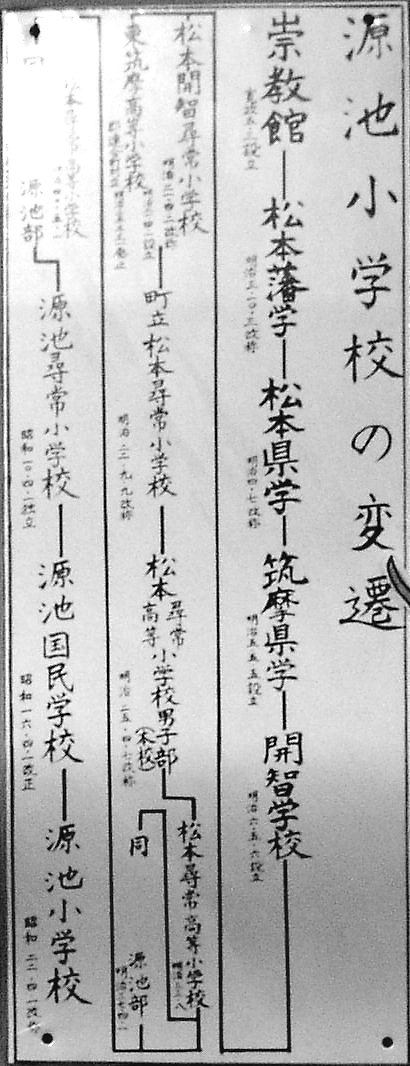 源池小学校の変遷
崇教館
寛政五・三設立
松本藩学
明治三・一〇・三改称
松本県学
明治四・七改称
筑摩県学
明治五・五・五設立
開智学校
明治六・五・六設立
松本開智尋常小学校
東筑摩高等小学校
町立松本尋常小学校
明治二二・九・九改称
松本尋常高等小学校男子部
(本校)
明治二五・四・七改称
松本尋常高等小学校
同
源池部
松本尋常高等小学校
同
源池部
源池尋常小学校
昭和一〇・四・二独立
源池国民学校
昭和一六・四・一改正
源池小学校
昭和二二・四・一改称